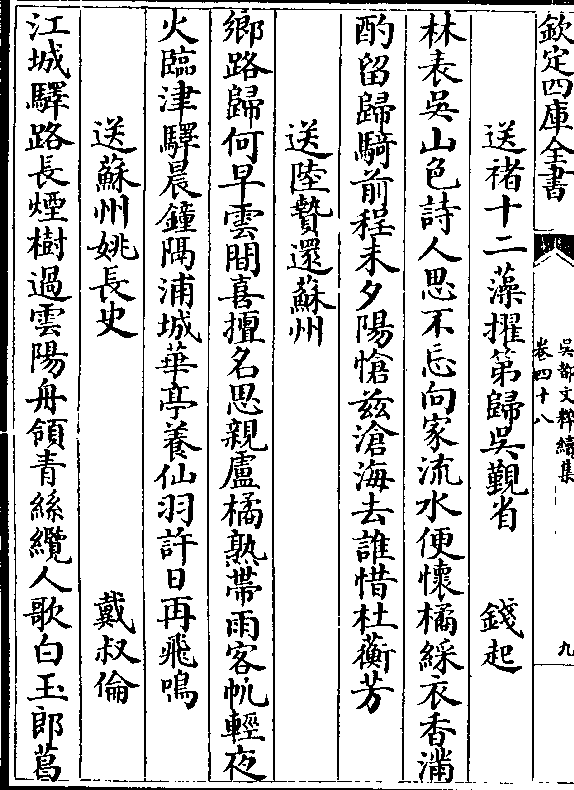 欽定四庫全書
吳都文粹續集
卷四十八
九
送褚十二藻擢第歸吳覲省 錢起
林表吳山色詩人思不忘向家流水便懷橘綵衣香滿
酌留歸騎前程未夕陽愴兹滄海去誰惜杜蘅芳
送陸贄還蘇州
鄉路歸何早雲間喜擅名思親盧橘熟帶雨客帆輕夜
火臨津驛晨鐘隔浦城華亭養仙羽許日再飛鳴
送蘇州姚長史 戴叔倫
江城驛路長煙樹過雲陽舟領青絲纜人歌白玉郎葛